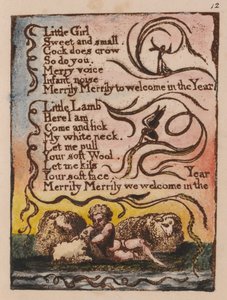 12
Little Girl
Sweet and small.
Cock does crow
So do you.
Merry voice
Infant noise
Merrily Merrily to welcome in the Year
Little Lamb
Here I am
Come and lick
My white neck.
Let me pull
Your soft Wool.
Let me kiss
Your soft face.
Merrily Merrily we welcome in the Year